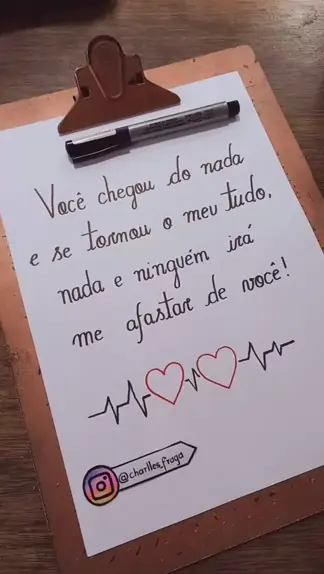 Você chegou do nada
e se tornou o meu tudo,
nada e ninguém irá
me afastar de você!
@charlles_fraga